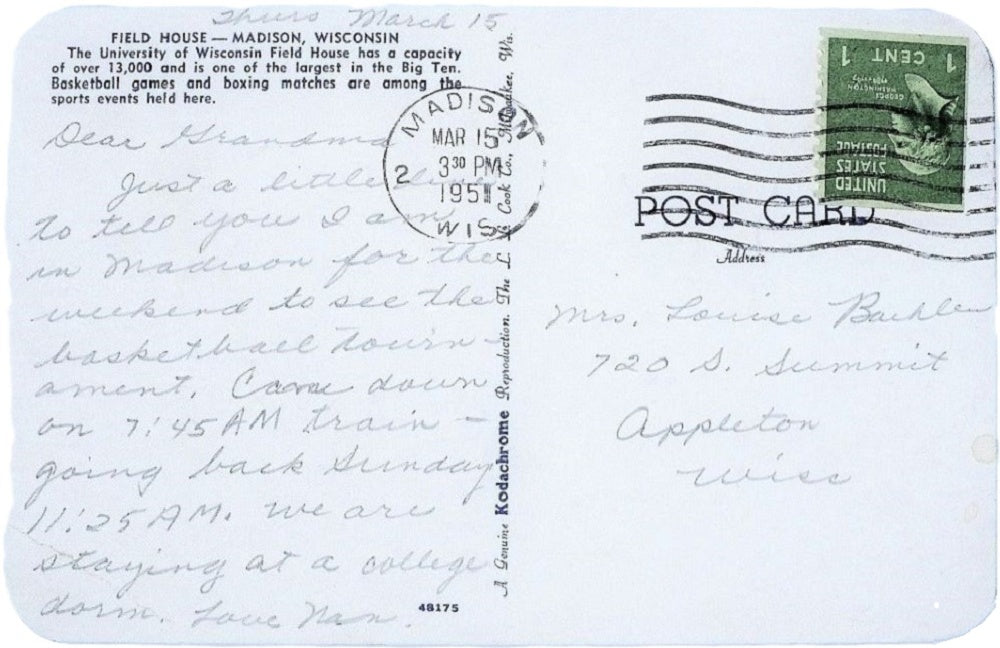 Thurs March 15
FIELD HOUSE — MADISON, WISCONSIN
The University of Wisconsin Field House has a capacity
of over 13,000 and is one of the largest in the Big Ten.
Basketball games and boxing matches are among the
sports events held here.
Dear Grandma
Just a little
to tell you I am
in Madison for the
weekend to see the
basketball tourn-
ament. Came down
on 7:45 AM train –
going back Sunday
11:25 AM. We are
staying at a college
dorm. Love Nan.
48175
A Genuine Kodachrome Reproduction. The L. L. Cook Co., Milwaukee, Wis.
MADISON
MAR 15
2 3 30 PM
1951
WIS.
UNITED
STATES
POSTAGE
GEORGE
WASHINGTON
1 CENT 1
POST CARD
Address
Mrs. Louise
720 S. Summit
Appleton
Wisc